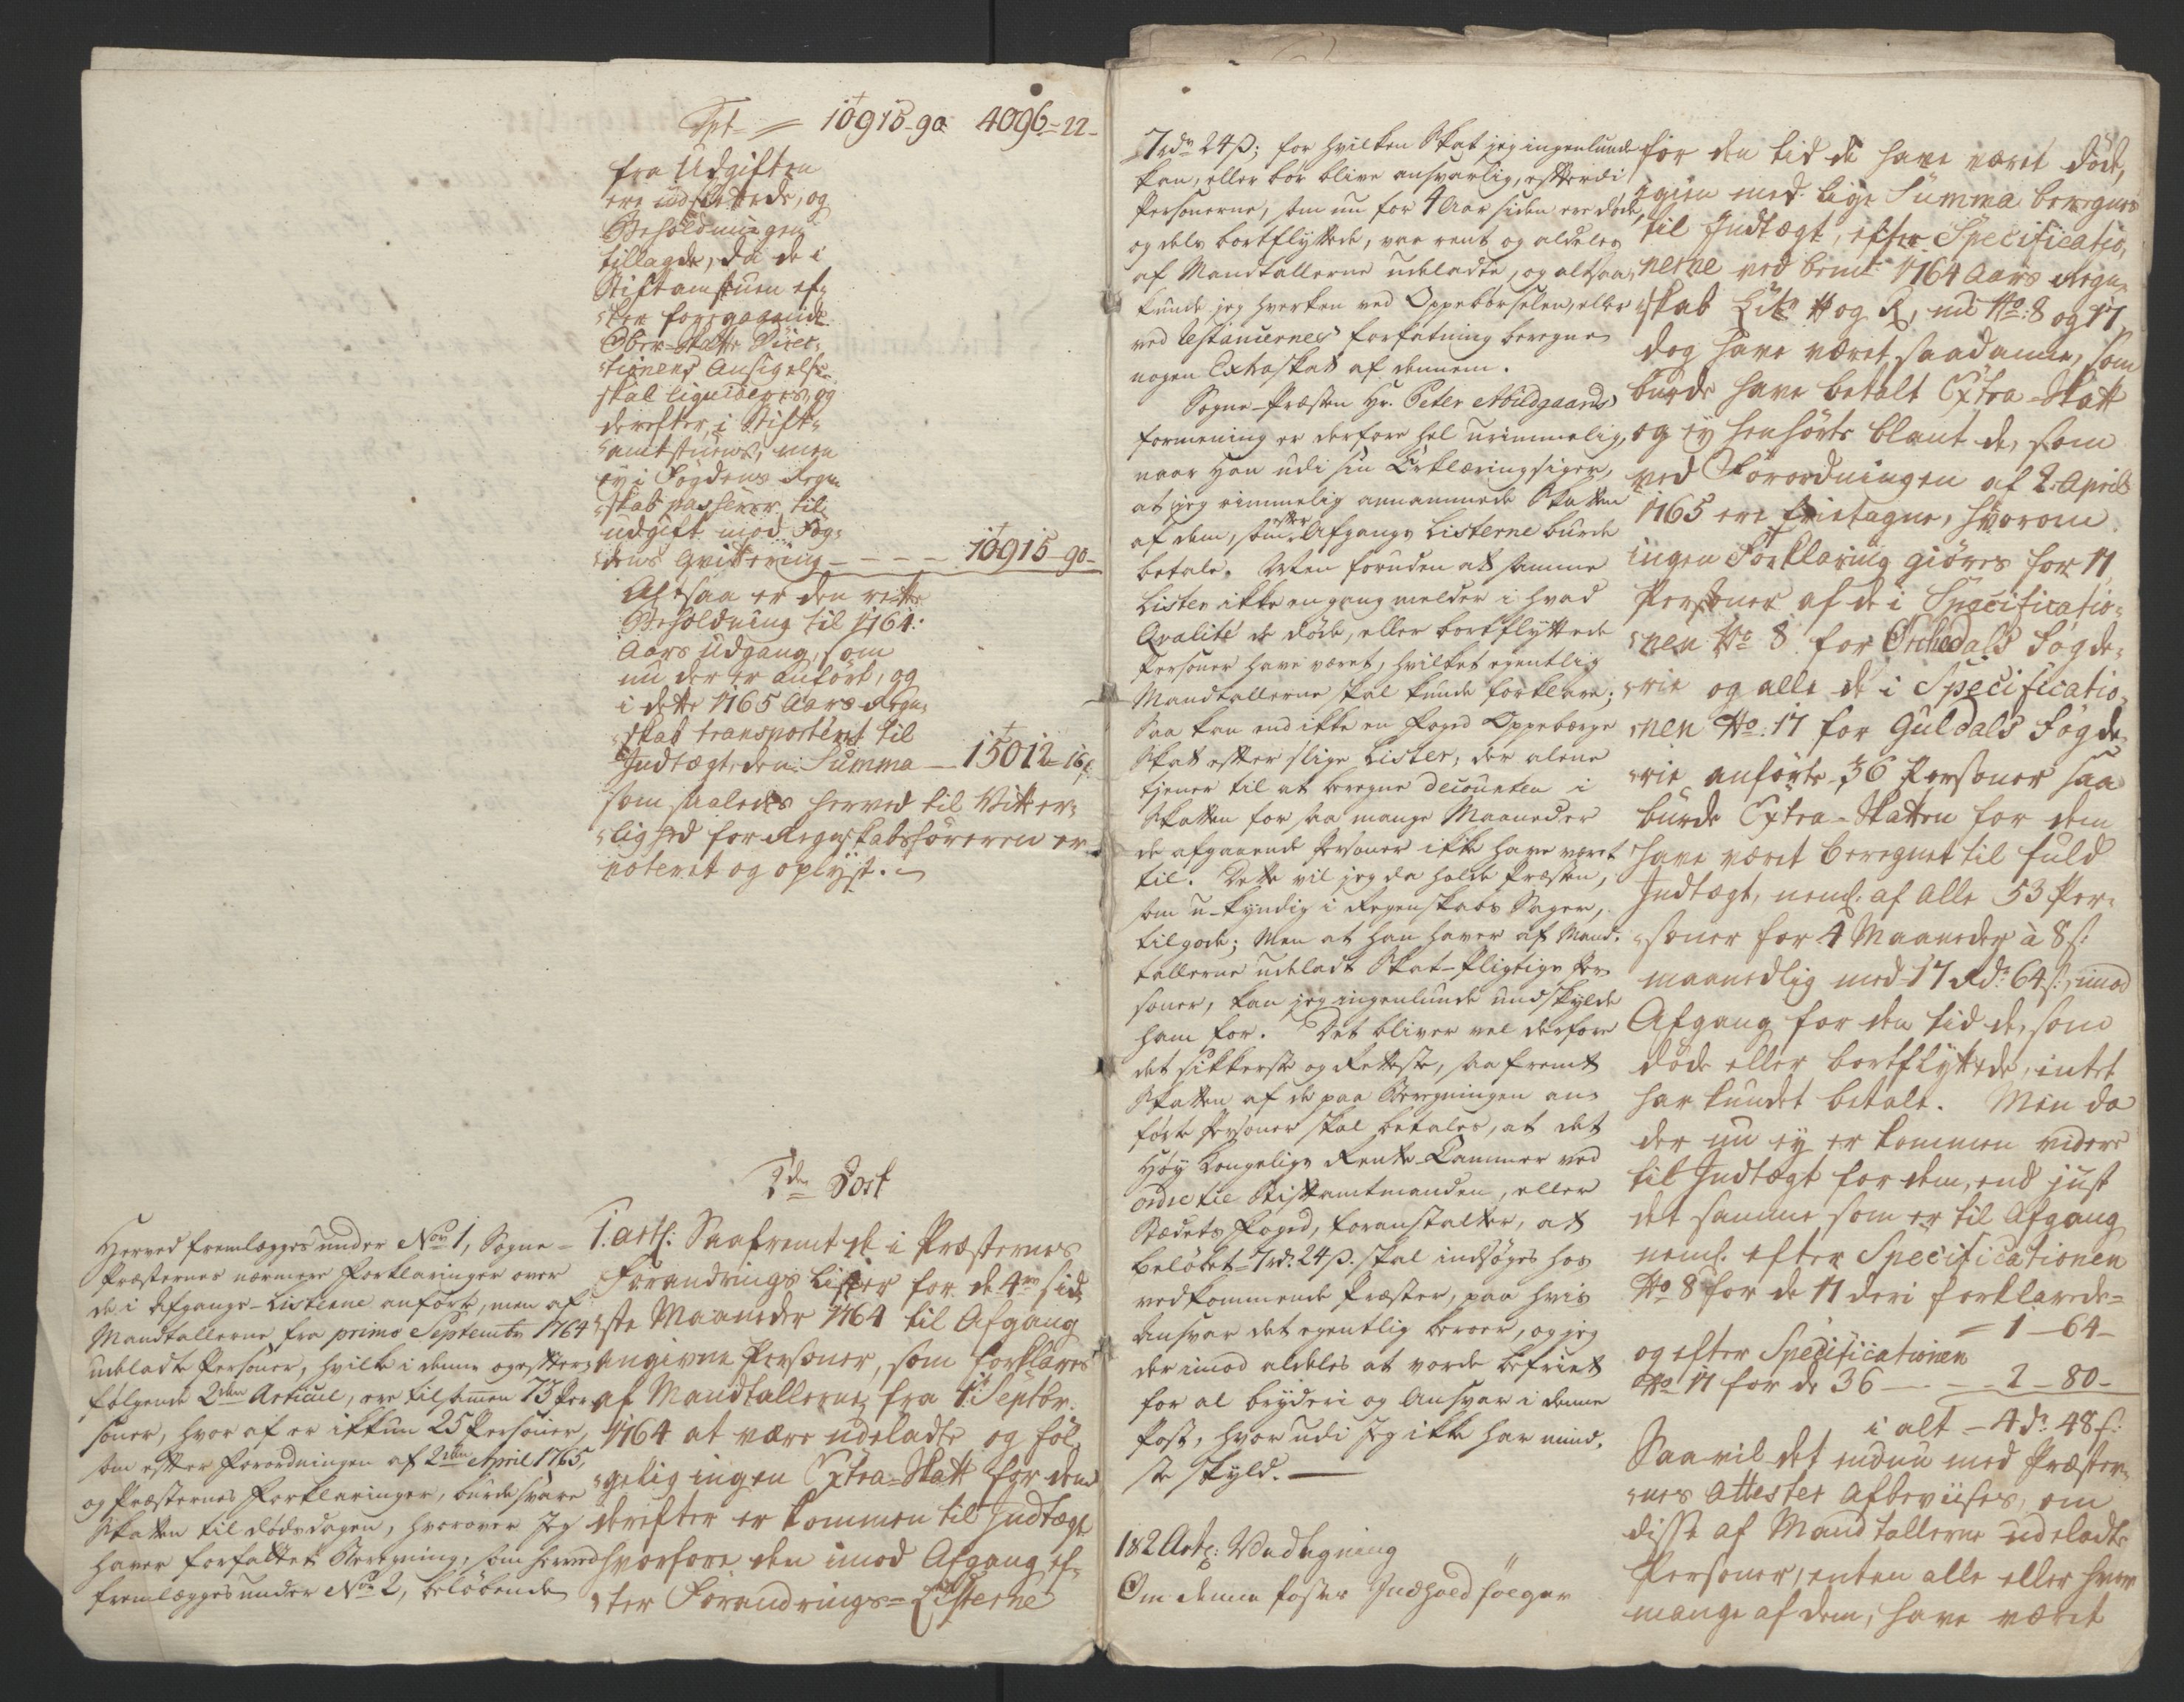 Tpt = 10915-90 4096-22-
fra Udgiften
ere udslettede, og
Beholdningen
tillagde, da de i
Stiftamstuen ef-
ter foregaaende
Ober-Skatte Direc-
tionens Ansigelse
skal liqvideres, og
derefter, i Stift-
amtstuens, men
ey i Fogdens Regn-
skab passerer til
udgift mod Fog-
dens Qvittering - - - - 10915-90-
Altsaa er den rette
Beholdning til 1764
Aars Udgang, som
nu der er anført, og
i dette 1765 Aars Regn-
skab transporteret til
Indtægt, den Summa - 15012-16 s
som saaledes herved til Vitter-
lighed for Regnskabsføreren er
noteret og oplyst.
1den Post
Herved fremlægges under No 1, Sogne-
Præsternes nærmere Forklaringer over
de i Afgangs-Listerne anførte, men af
Mandtallerne fra primo Septembr 1764
udeladte Personer, hvilke i denne og efter-
følgende 2den Articul, ere tilsammen 73 Per-
soner, hvor af er ikkun 25 Personer,
som efter Forordningen af 2den April 1765,
og Præsternes Forklaringer, burde svare
Skatten til dødsdagen, hvorover jeg
haver forfattet Beregning, som herved
fremlægges under No 2, beløbende
1. Art: Saafremt de i Præsternes
Forandrings Lister for de 4re sid-
ste Maaneder 1764 til Afgang
angivne Personer, som forklares
af Mandtallerne fra 1. Septbr.
1764 at være udeladte og føl-
gelig ingen Extra-Skatt for dem
derefter er kommen til Indtægt
hvorfore den imod Afgang ef-
ter Forandrings-Listerne
7 rdr 24 ß; for hvilken Skat jeg ingenlunde
kan, eller bør blive ansvarlig, efterdi
Personerne, som nu for 4 Aar siden ere døde,
og dels bortflyttede, var rent og aldeles
af Mandtallerne udeladte, og altsaa
kunde jeg hverken ved Oppebørselen, eller
ved Restancernes forfatning beregne
nogen Extraskat af dennem.
Sogne-Præsten Hr. Peter Abildgaards
formening er derfore hel urimmelig,
naar Han udi sin Erklæring siger,
at jeg rimmelig annammede Skatten
af dem, som efter Afgangs Listerne burde
betale. Men foruden at samme
Lister ikke engang melder i hvad
Qvalité de døde, eller bortflyttede
Personer have været, hvilket egentlig
Mandtallerne skal kunde forklare;
Saa kan end ikke en Foged Oppebærge
Skat efter slige Lister, der alene
tjener til at beregne decourten i
Skatten for saa mange Maaneder
de afgaaende Personer ikke have været
til. Dette vil jeg da holde Præsten,
som u-kyndig i Regenskabs Sager,
tilgode; Men at han haver af Mand-
tallerne udeladt Skat-Pligtige Per-
soner, kan jeg ingenlunde undskylde
ham for. Det bliver vel derfore
det sikkerste og Retteste, saa fremt
Skatten af de paa Beregningen an-
førte Personer skal betales, at det
Høy Kongelige Rente Cammer ved
ordre til Stiftamtmanden, eller
Stædets Foged, foranstalter, at
beløbet 7 rd. 24 ß. skal indsøges hos
vedkommende Præster, paa hvis
Ansvar det egentlig beroer, og jeg
derimod aldeles at vorde befriet
for al bryderi og Ansvar i denne
Post, hvor udi jeg ikke har mind-
ste skyld.
1 & 2 Art:
Om denne Postes Indhold følger
for den tid de have været døde,
igien med lige Summa beregnes
til Indtægt, efter Specificatio-
nerne ved bemte 1764 Aars Regn-
skab Litr og R, No: 8 og 17
dog have været saadanne, som
burde have betalt Extra-Skatt
og ey henhørte blant de, som
ved Forordningen af 2. April
1765 ere fritagne, hvorom
ingen Forklaring giøres for 17
Personer af de i Specificatio-
nen No 8 for Orchedals Fogde-
rie og alle de i Specificatio-
nen No. 17 for Guldals Fogde-
rie anførte 36 Personer saa
burde Extra-Skatten for dem
have været beregnet til fuld
Indtægt, neml. af alle 53 Per-
soner for 4 Maaneder à 8 s:
maanedlig med 17 Rdr 64 s:, imod
Afgang for den tid de, som
døde eller bortflyttede, intet
har kundet betale. Men da
der nu ey er kommen videre
til Indtægt for dem, end just
det samme som er til Afgang
neml. efter Specificationen
No 8 for de 17 deri forklarede -
= 1 - 64 -
og efter Specificationen
No 17 for de 36 - - - 2 - 80 -
i alt - 4 dr 48 s:
Saa vil det endnu med Præster-
nes Attester afbeviises, om
disse af Mandtallerne udeladte
Personer, enten alle eller hvor
mange af dem, have været